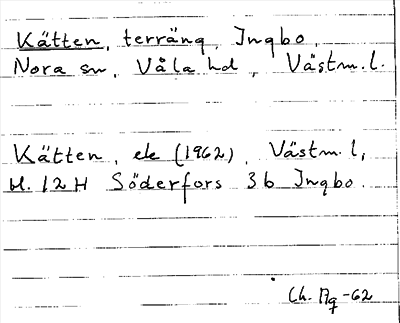 Kätten, terräng, Ingbo,
Nora sn, Våla hd, Västm. l.
Kätten, ek (1962), Västm. l,
bl. 12H Söderfors 3b Ingbo.
Ch. Ag -62